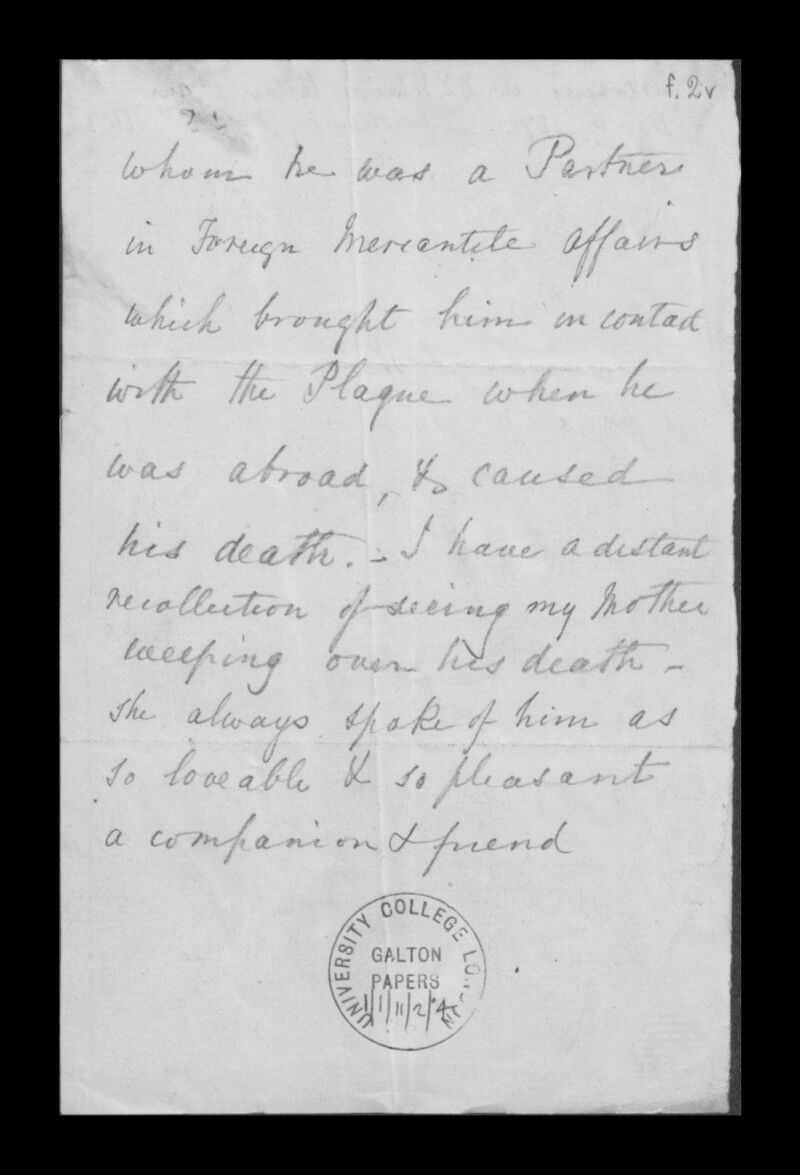 f. 2v
whom he was a Partner
in Foreign Mercantile affairs
which brought him in contact
with the Plague when he
was abroad, & caused
his death. - I have a distant
recollection of seeing my Mother
weeping over his death -
she always spoke of him as
so loveable & so pleasant
a companion & friend
UNIVERSITY COLLEGE LONDON
GALTON
PAPERS
1/1/11/2/4